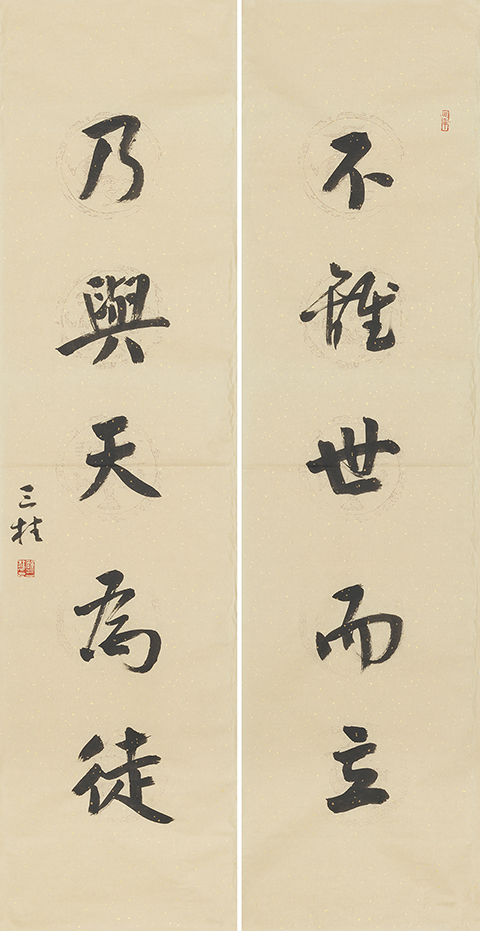 不離世而立
乃與天為徒
三桂